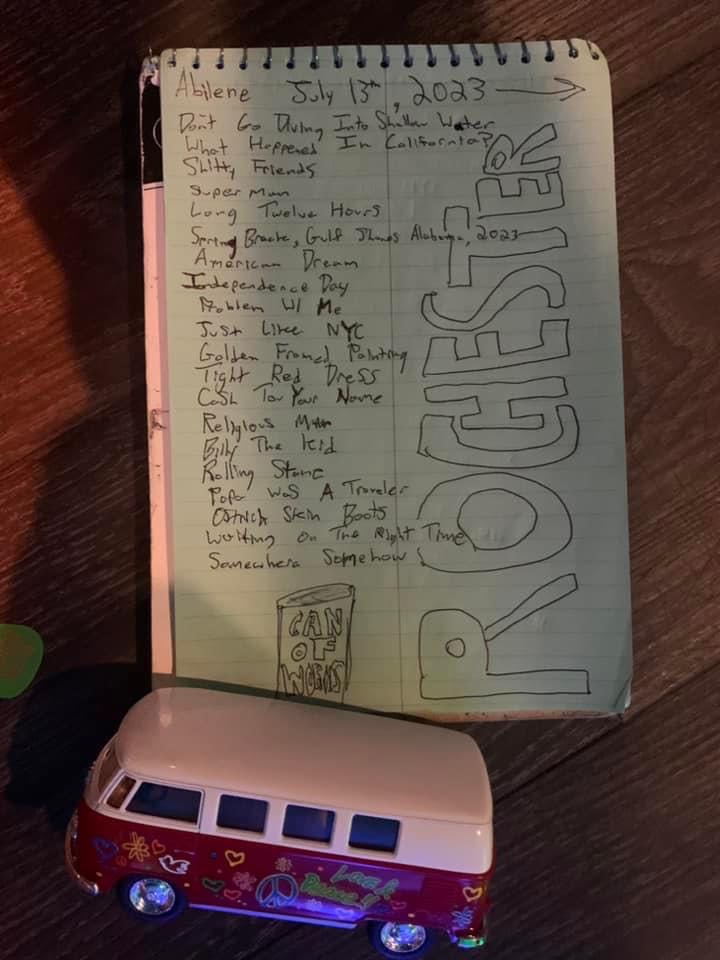 Abilene July 13th, 2023
Don't Go Diving Into Shallow Water
What Happened In California?
Shitty Friends
Super Man
Long Twelve Hours
Spring Breake, Gulf Shores Alabama, 2023
American Dream
Independence Day
Problem W/ Me
Just Like NYC
Golden Framed Painting
Tight Red Dress
Cash For Your Name
Religious Man
Billy The Kid
Rolling Stone
Papa Was A Traveler
Ostrich Skin Boots
Waiting On The Right Time
Somewhere Somehow
ROCHESTER
CAN
OF
WORMS
Love &
Peace!!